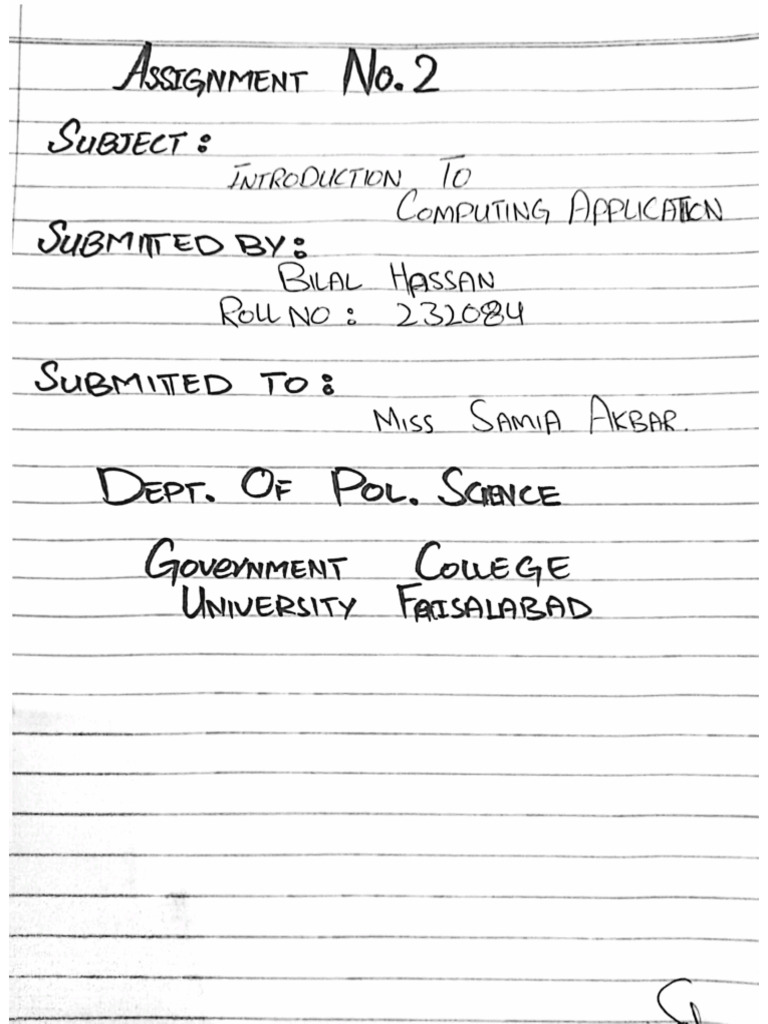 ASSIGNMENT No. 2
SUBJECT :
INTRODUCTION TO
COMPUTING APPLICATION
SUBMITTED BY :
BILAL HASSAN
ROLL NO : 232084
SUBMITED TO :
MISS SAMIA AKBAR.
DEPT. OF POL. SCIENCE
GOVERNMENT COLLEGE
UNIVERSITY FAISALABAD